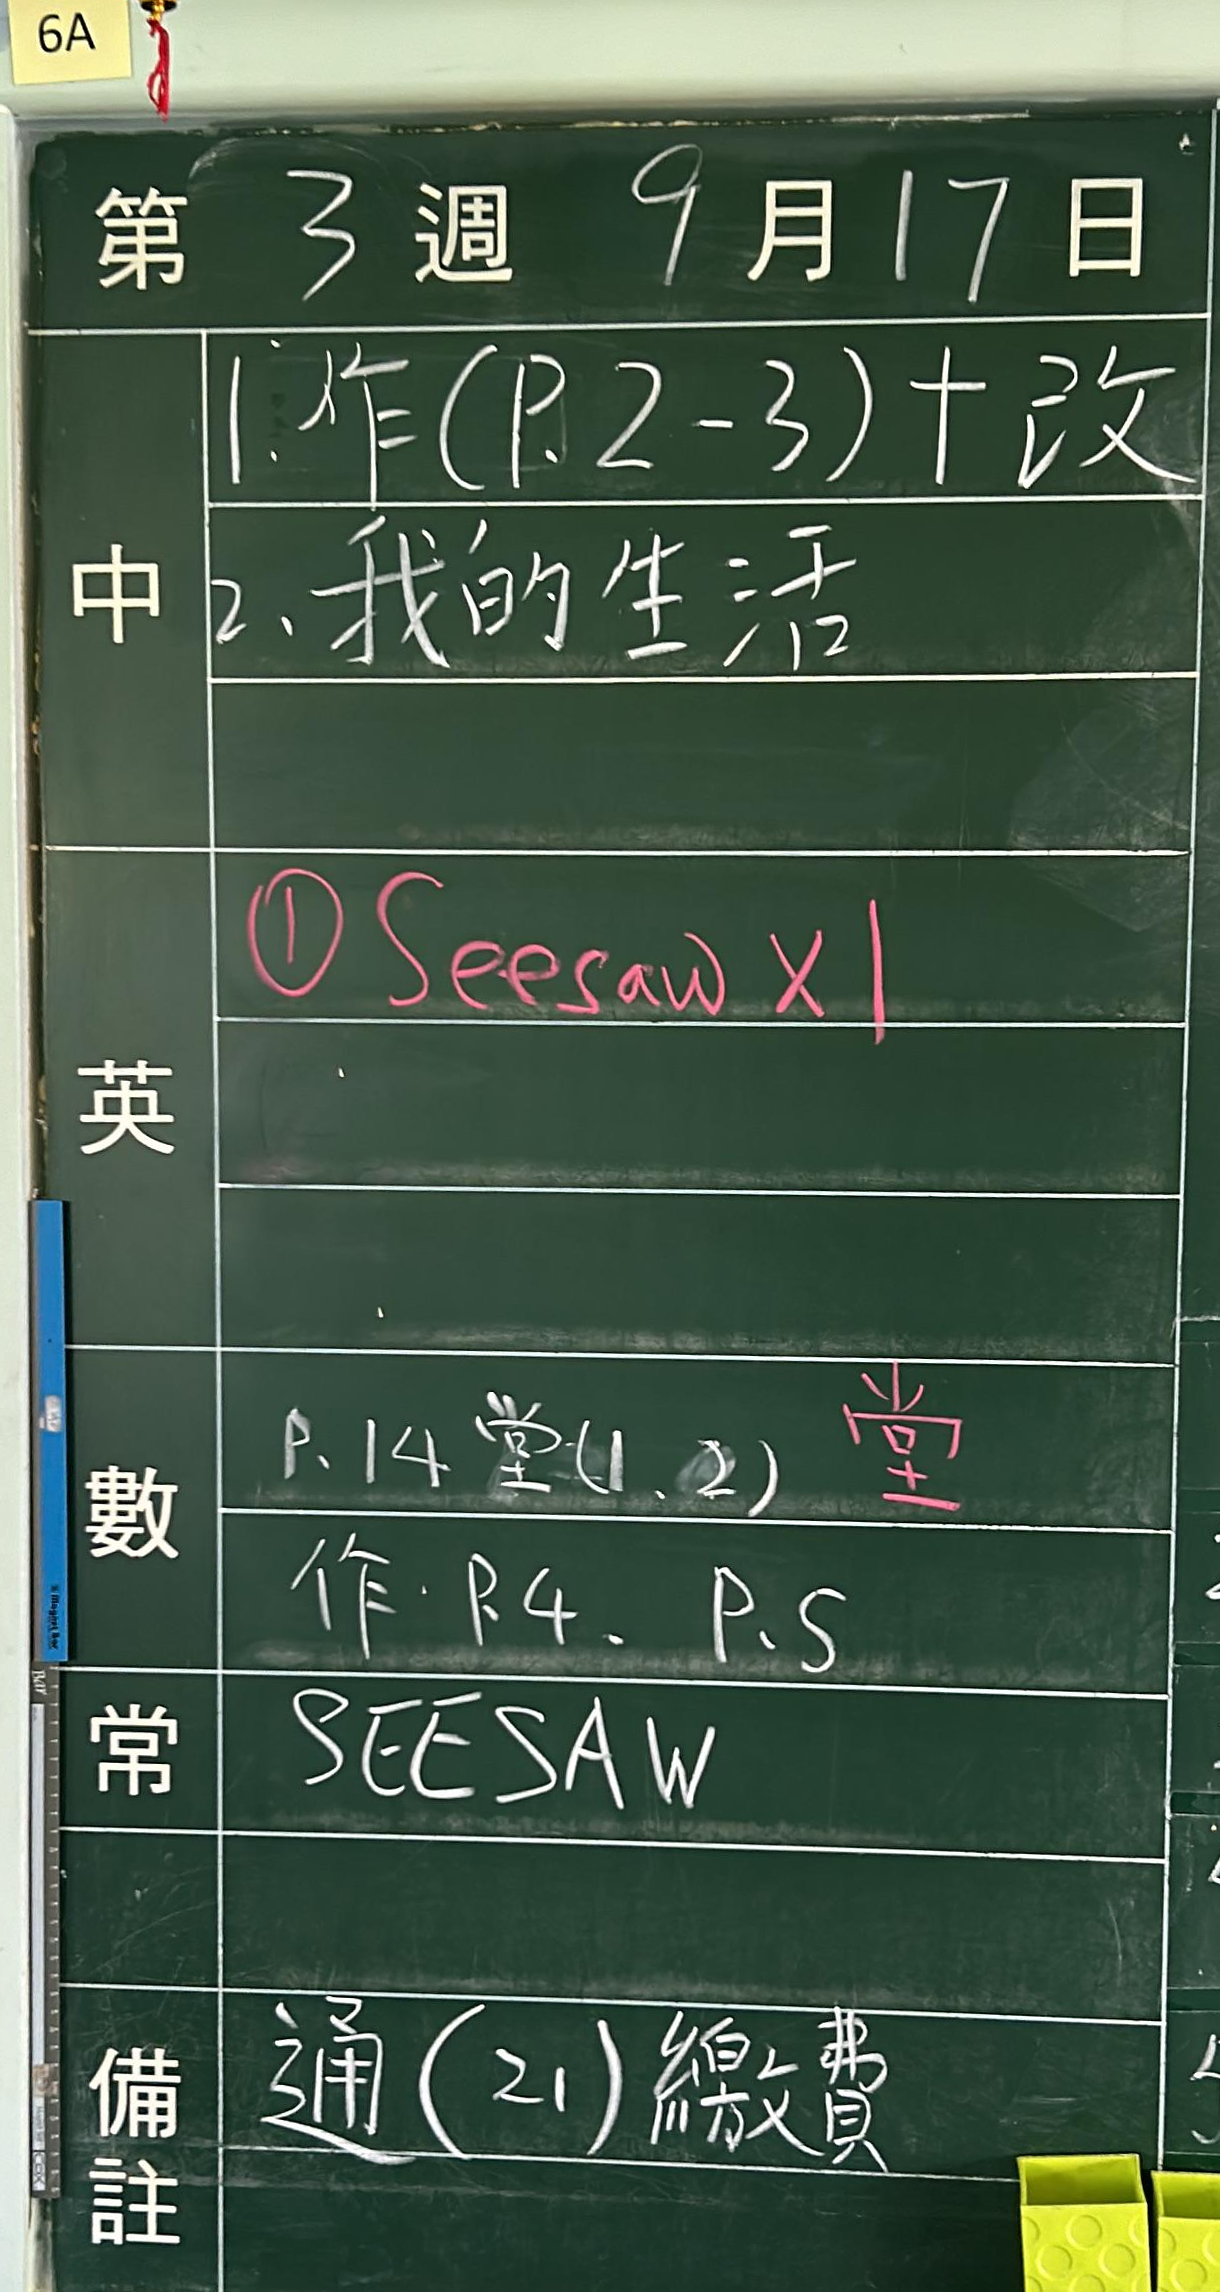 6A
第 3 週 9 月 17 日
中
1. 作(P.2-3)+改
2. 我的生活
英
① Seesaw x 1
數
P.14 堂(1.2) 堂
作. P.4. P.5
常
SEESAW
備註
通(21)繳費